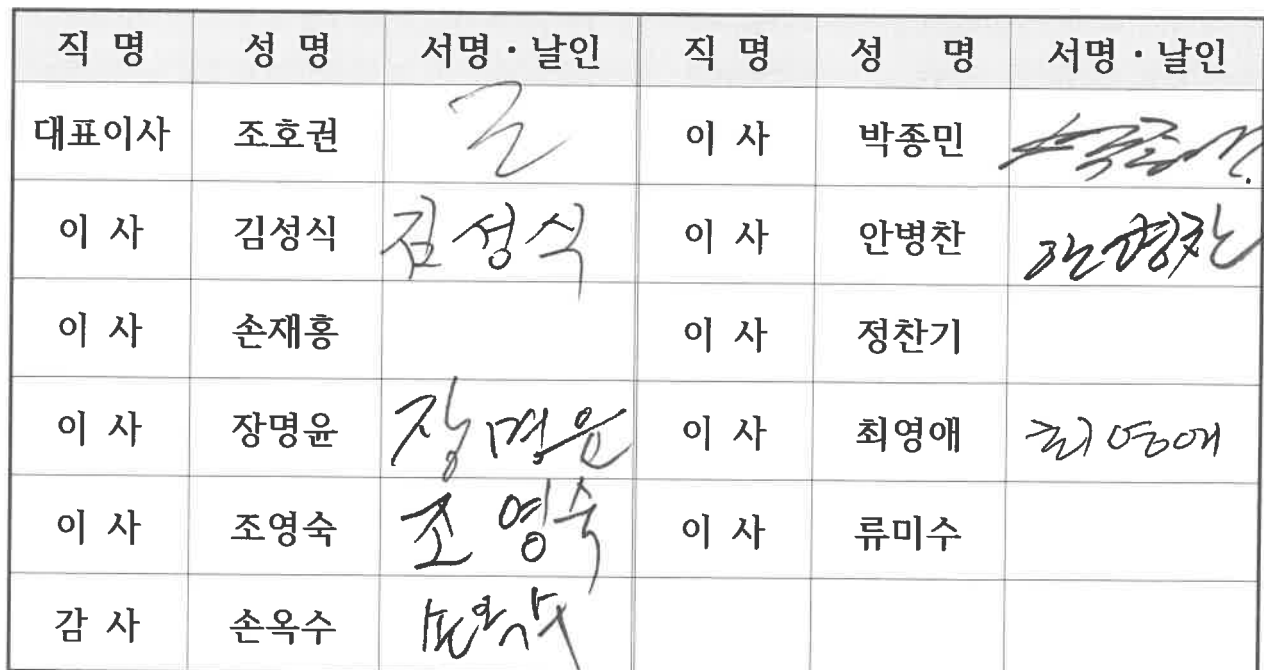 직 명 성 명 서명·날인 직 명 성 명 서명·날인
대표이사 조호권 이 사 박종민 박종민
이 사 김성식 김성식 이 사 안병찬 안병찬
이 사 손재홍 이 사 정찬기
이 사 장명윤 장명윤 이 사 최영애 최영애
이 사 조영숙 조영숙 이 사 류미수
감 사 손옥수 손옥수